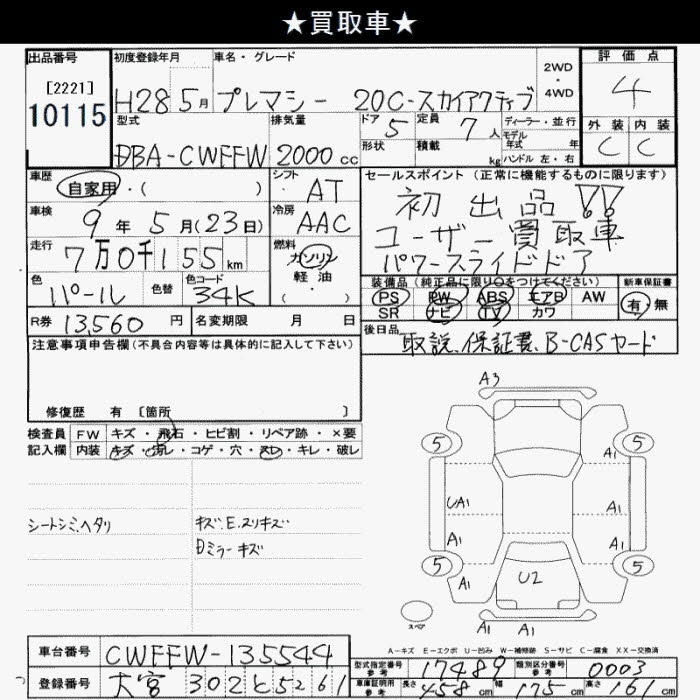 ★買取車★
出品番号
[2221]
10115
初度登録年月
H28 5月
車名・グレード
プレマシー 20C-スカイアクティブ
2WD
・
4WD
評価点
4
外装 内装
C C
型式
DBA-CWEFFW
排気量
2000cc
ドア
5
形状
定員
7人
積載
kg
ディーラー・並行
モデル
年式 年
ハンドル 左・右
車歴
自家用・( )
シフト
AT
車検
9年5月(23日)
冷房
AAC
走行
7万0千155km
燃料
ガソリン
軽・油
( )
色
パール
色替
色コード
34K
R券 13,560円
名変期限 月 日
セールスポイント (正常に機能するものに限ります)
初出品!!
ユーザー買取車
パワースライドドア
装備品(純正品に限り○をつけてください)
PS PW ABS エアB AW
SR ナビ TV カワ
新車保証書
有・無
後日品
取説、保証書、B-CASカード
注意事項申告欄(不具合内容等は具体的に記入して下さい)
修復歴 有 [箇所 ]
検査員 FW キズ・飛石・ヒビ割・リペア跡・×要
記入欄 内装 キズ・汚レ・コゲ・穴・スレ・キレ・破レ
シートシミ、ヘタリ
キズ、E、スリキズ
Dミラーキズ
A3
5 5
A1
UA1 A1
A1 A1
5 5
A1 A1
U2
A1 A1
スペア
A-キズ E-エクボ U-凹み W-補修跡 S-サビ C-腐食 XX-交換済
車台番号 CWEFFW-135544
登録番号 大宮 302 と 5261
型式指定番号 参考 17489
類別区分番号 参考 0003
車庫証明用 参考 長さ 458cm 幅 175cm 高さ 161cm